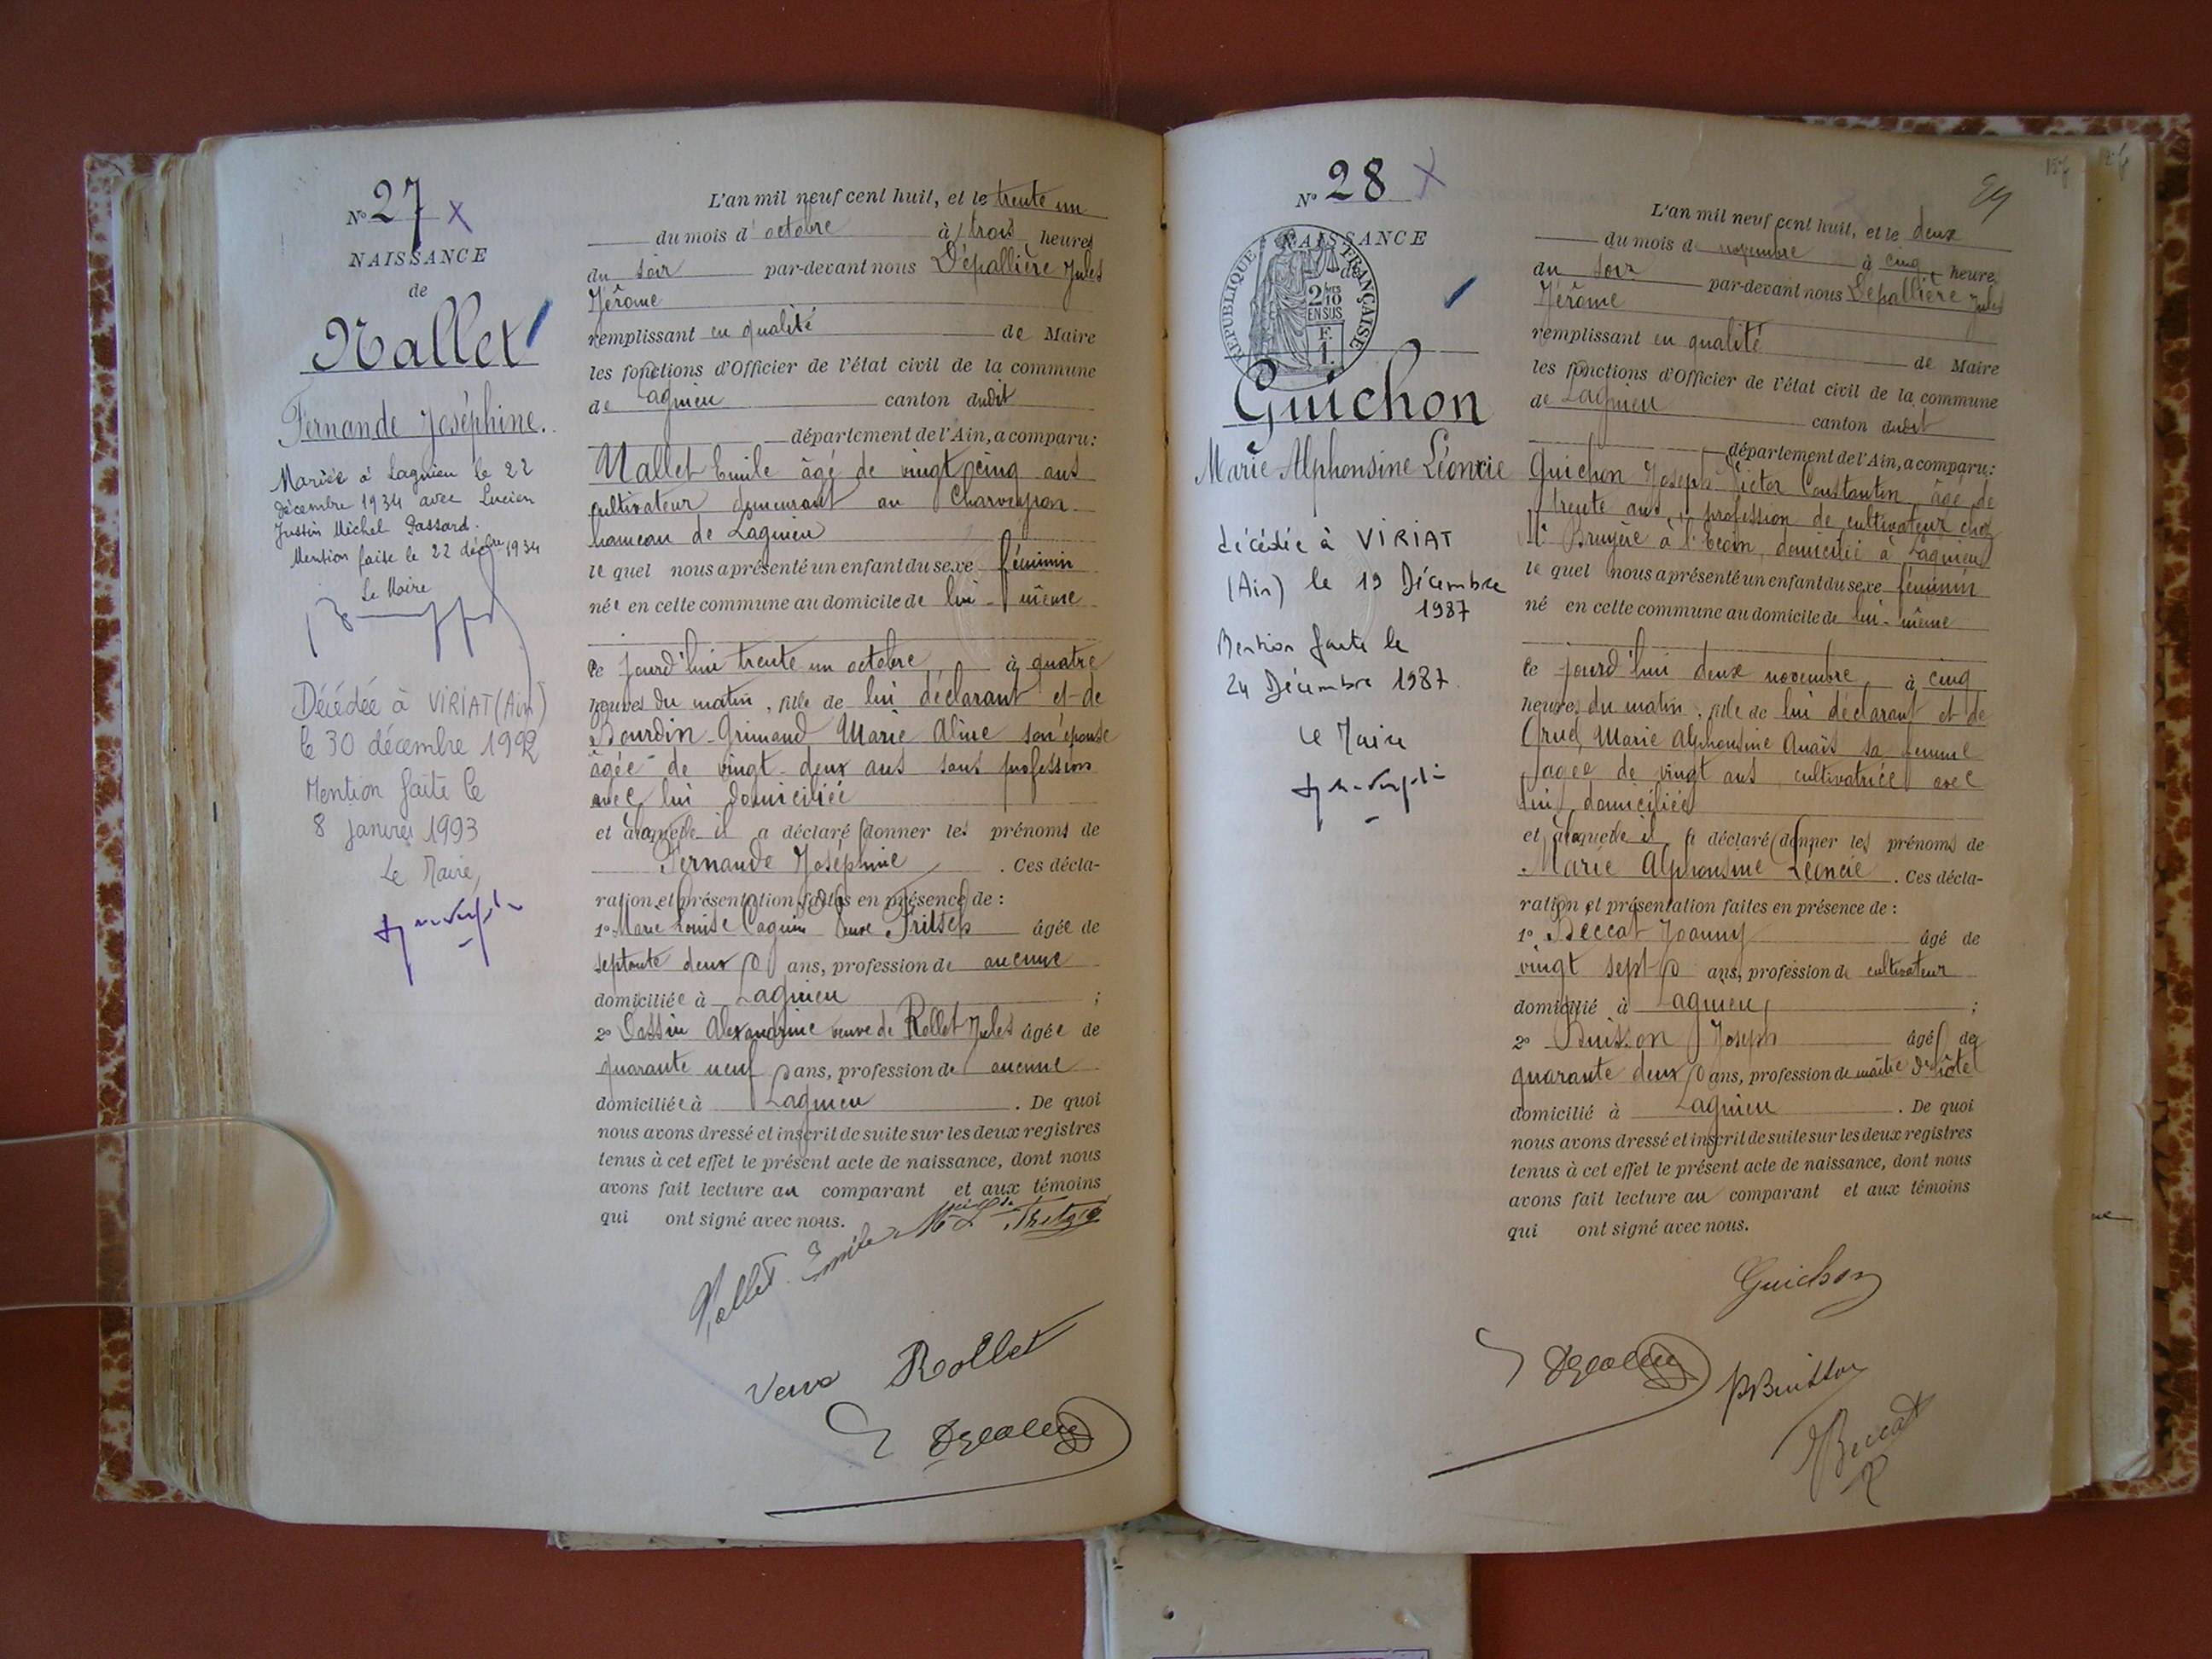 N° 27 X
NAISSANCE
de
Nallet
Fernande Joséphine.
Mariée à Lagnieu le 22
décembre 1934 avec Lucien
Justin Michel Passard.
Mention faite le 22 décbre 1934
Le Maire
Décédée à VIRIAT (Ain)
le 30 décembre 1992
Mention faite le
8 janvier 1993
Le Maire,
L'an mil neuf cent huit, et le trente un
du mois d'octobre à trois heures
du soir par-devant nous Dépallière Jules
Jérôme
remplissant en qualité de Maire
les fonctions d'Officier de l'état civil de la commune
de Lagnieu canton dudit
département de l'Ain, a comparu:
Nallet Emile âgé de vingt cinq ans
cultivateur demeurant au Charveyron
hameau de Lagnieu
le quel nous a présenté un enfant du sexe féminin
née en cette commune au domicile de lui-même
ce jourd'hui trente un octobre, à quatre
heures du matin, fille de lui déclarant et de
Bourdin-Grimaud Marie Aline son épouse
âgée de vingt-deux ans sans profession
avec lui domiciliée
et à laquelle il a déclaré donner les prénoms de
Fernande Joséphine. Ces décla-
ration et présentation faites en présence de:
1° Marie Louise Caquin veuve Fritsch âgée de
septante deux ans, profession de aucune
domiciliée à Lagnieu;
2° Dassin Alexandrine veuve de Rollet Jules âgée de
quarante neuf ans, profession de aucune
domiciliée à Lagnieu. De quoi
nous avons dressé et inscrit de suite sur les deux registres
tenus à cet effet le présent acte de naissance, dont nous
avons fait lecture au comparant et aux témoins
qui ont signé avec nous.
Nallet Emile
Veuve Rollet
N° 28 X
NAISSANCE
de
RÉPUBLIQUE FRANÇAISE
2/10 EN SUS
F.
1.
Guichon
Marie Alphonsine Léoncie
décédée à VIRIAT
(Ain) le 19 Décembre
1987
Mention faite le
24 Décembre 1987.
Le Maire
L'an mil neuf cent huit, et le deux
du mois de novembre à cinq heures
du soir par-devant nous Dépallière Jules
Jérôme
remplissant en qualité de Maire
les fonctions d'Officier de l'état civil de la commune
de Lagnieu canton dudit
département de l'Ain, a comparu:
Guichon Joseph Victor Constantin, âgé de
trente ans, profession de cultivateur chez
Mr Bruyère à domicilié à Lagnieu
le quel nous a présenté un enfant du sexe féminin
né en cette commune au domicile de lui-même
ce jourd'hui deux novembre, à cinq
heures du matin, fille de lui déclarant et de
Marie Alphonsine Anaïs sa femme
âgée de vingt ans cultivatrice avec
lui domiciliée
et à laquelle il a déclaré donner les prénoms de
Marie Alphonsine Léoncie. Ces décla-
ration et présentation faites en présence de:
1° Beccat Joanny âgé de
vingt sept ans, profession de cultivateur
domicilié à Lagnieu;
2° Buisson Joseph âgé de
quarante deux ans, profession de maître d'hôtel
domicilié à Lagnieu. De quoi
nous avons dressé et inscrit de suite sur les deux registres
tenus à cet effet le présent acte de naissance, dont nous
avons fait lecture au comparant et aux témoins
qui ont signé avec nous.
Guichon
Buisson
Beccat